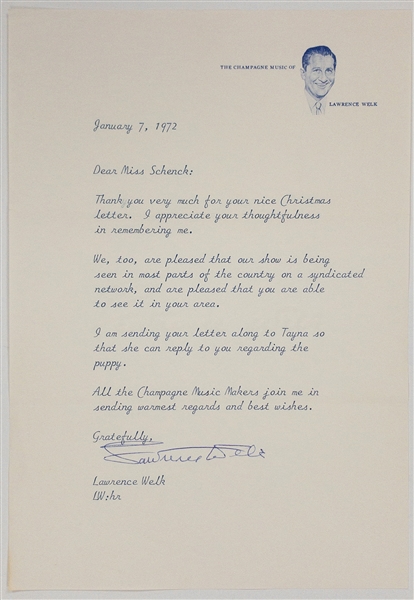 THE CHAMPAGNE MUSIC OF
LAWRENCE WELK
January 7, 1972
Dear Miss Schenck:
Thank you very much for your nice Christmas
letter. I appreciate your thoughtfulness
in remembering me.
We, too, are pleased that our show is being
seen in most parts of the country on a syndicated
network, and are pleased that you are able
to see it in your area.
I am sending your letter along to Tayna so
that she can reply to you regarding the
puppy.
All the Champagne Music Makers join me in
sending warmest regards and best wishes.
Gratefully,
Lawrence Welk
Lawrence Welk
LW:hr